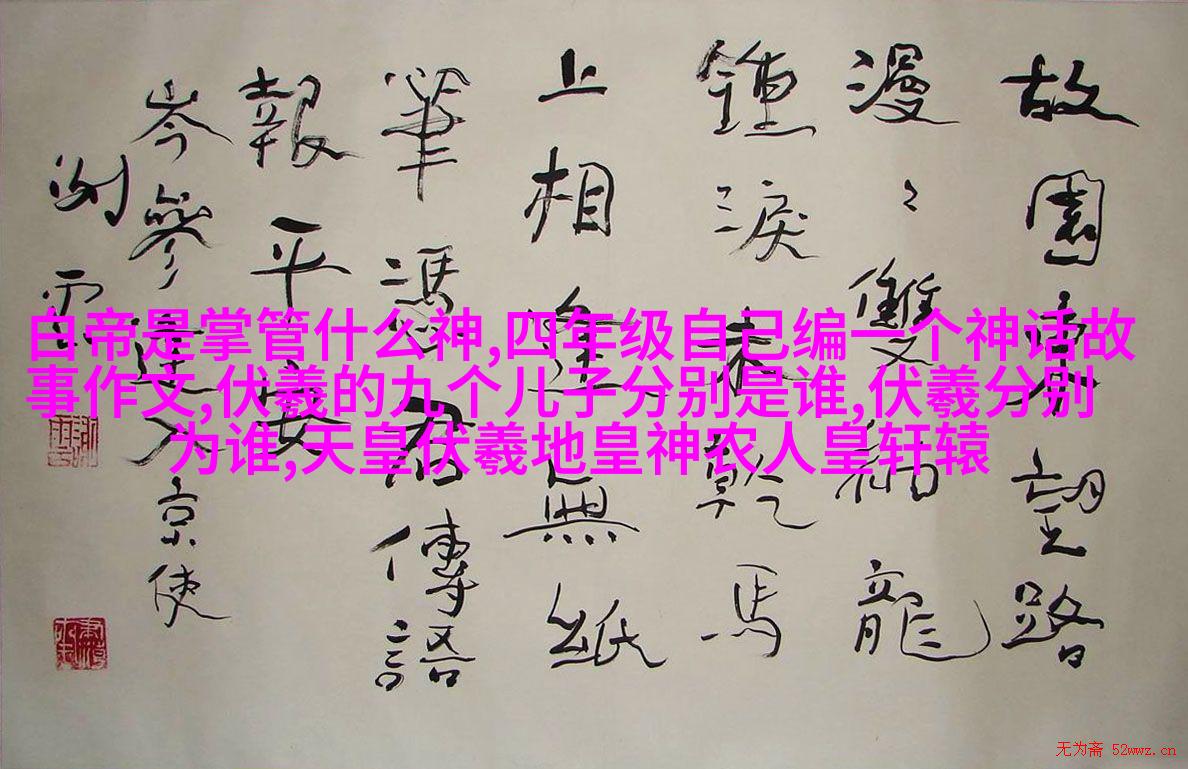 白帝是掌管什么神,四年级自己编一个神话故
事作文,伏羲的九个儿子分别是谁,伏羲分别
为谁,天皇伏羲地皇神农人皇轩辕
故園東望路
漫〻雙袖龍
鍾淚未乾馬
上相逢無紙
筆馮君傳語
報平安
岑參逢入京使
无为斋 52wwz.cn